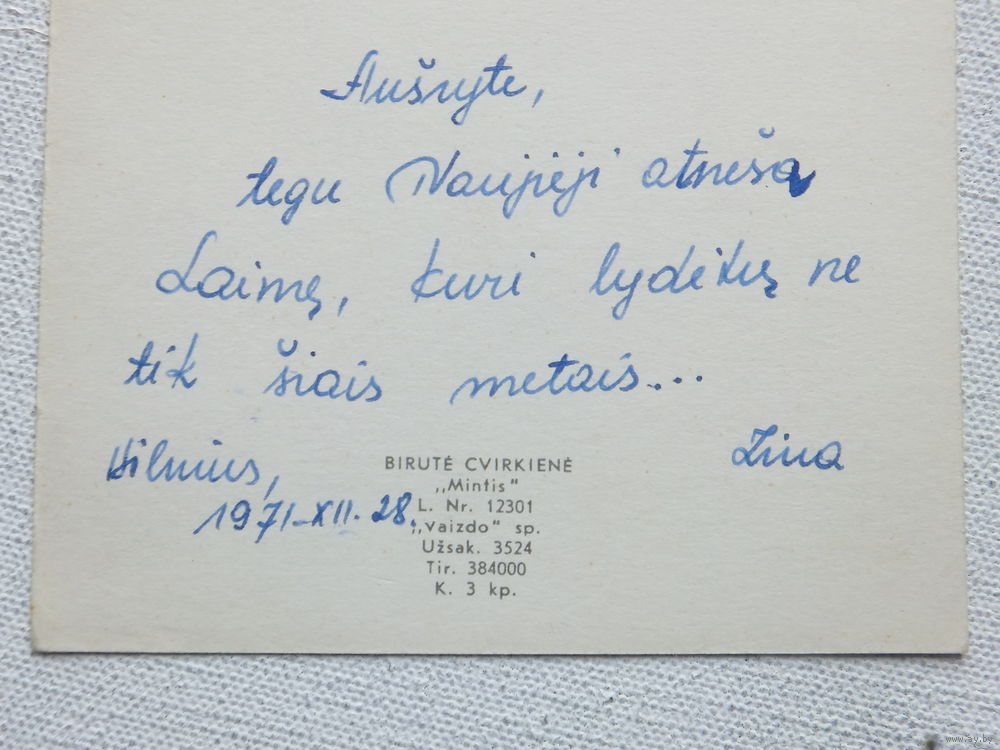 Aušryte,
tegu Naujieji atneša
Laimę, kuri lydėtų ne
tik šiais metais...
Zina
Vilnius,
1971-XII-28.
BIRUTĖ CVIRKIENĖ
„Mintis"
L. Nr. 12301
„Vaizdo" sp.
Užsak. 3524
Tir. 384000
K. 3 kp.
www.ay.by